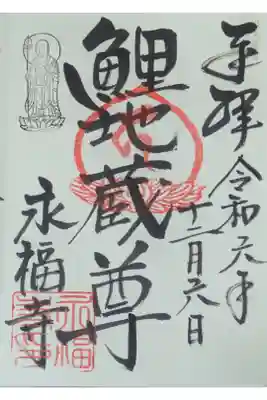 奉拝
令和六年
十二月六日
鯉地蔵尊
永福寺